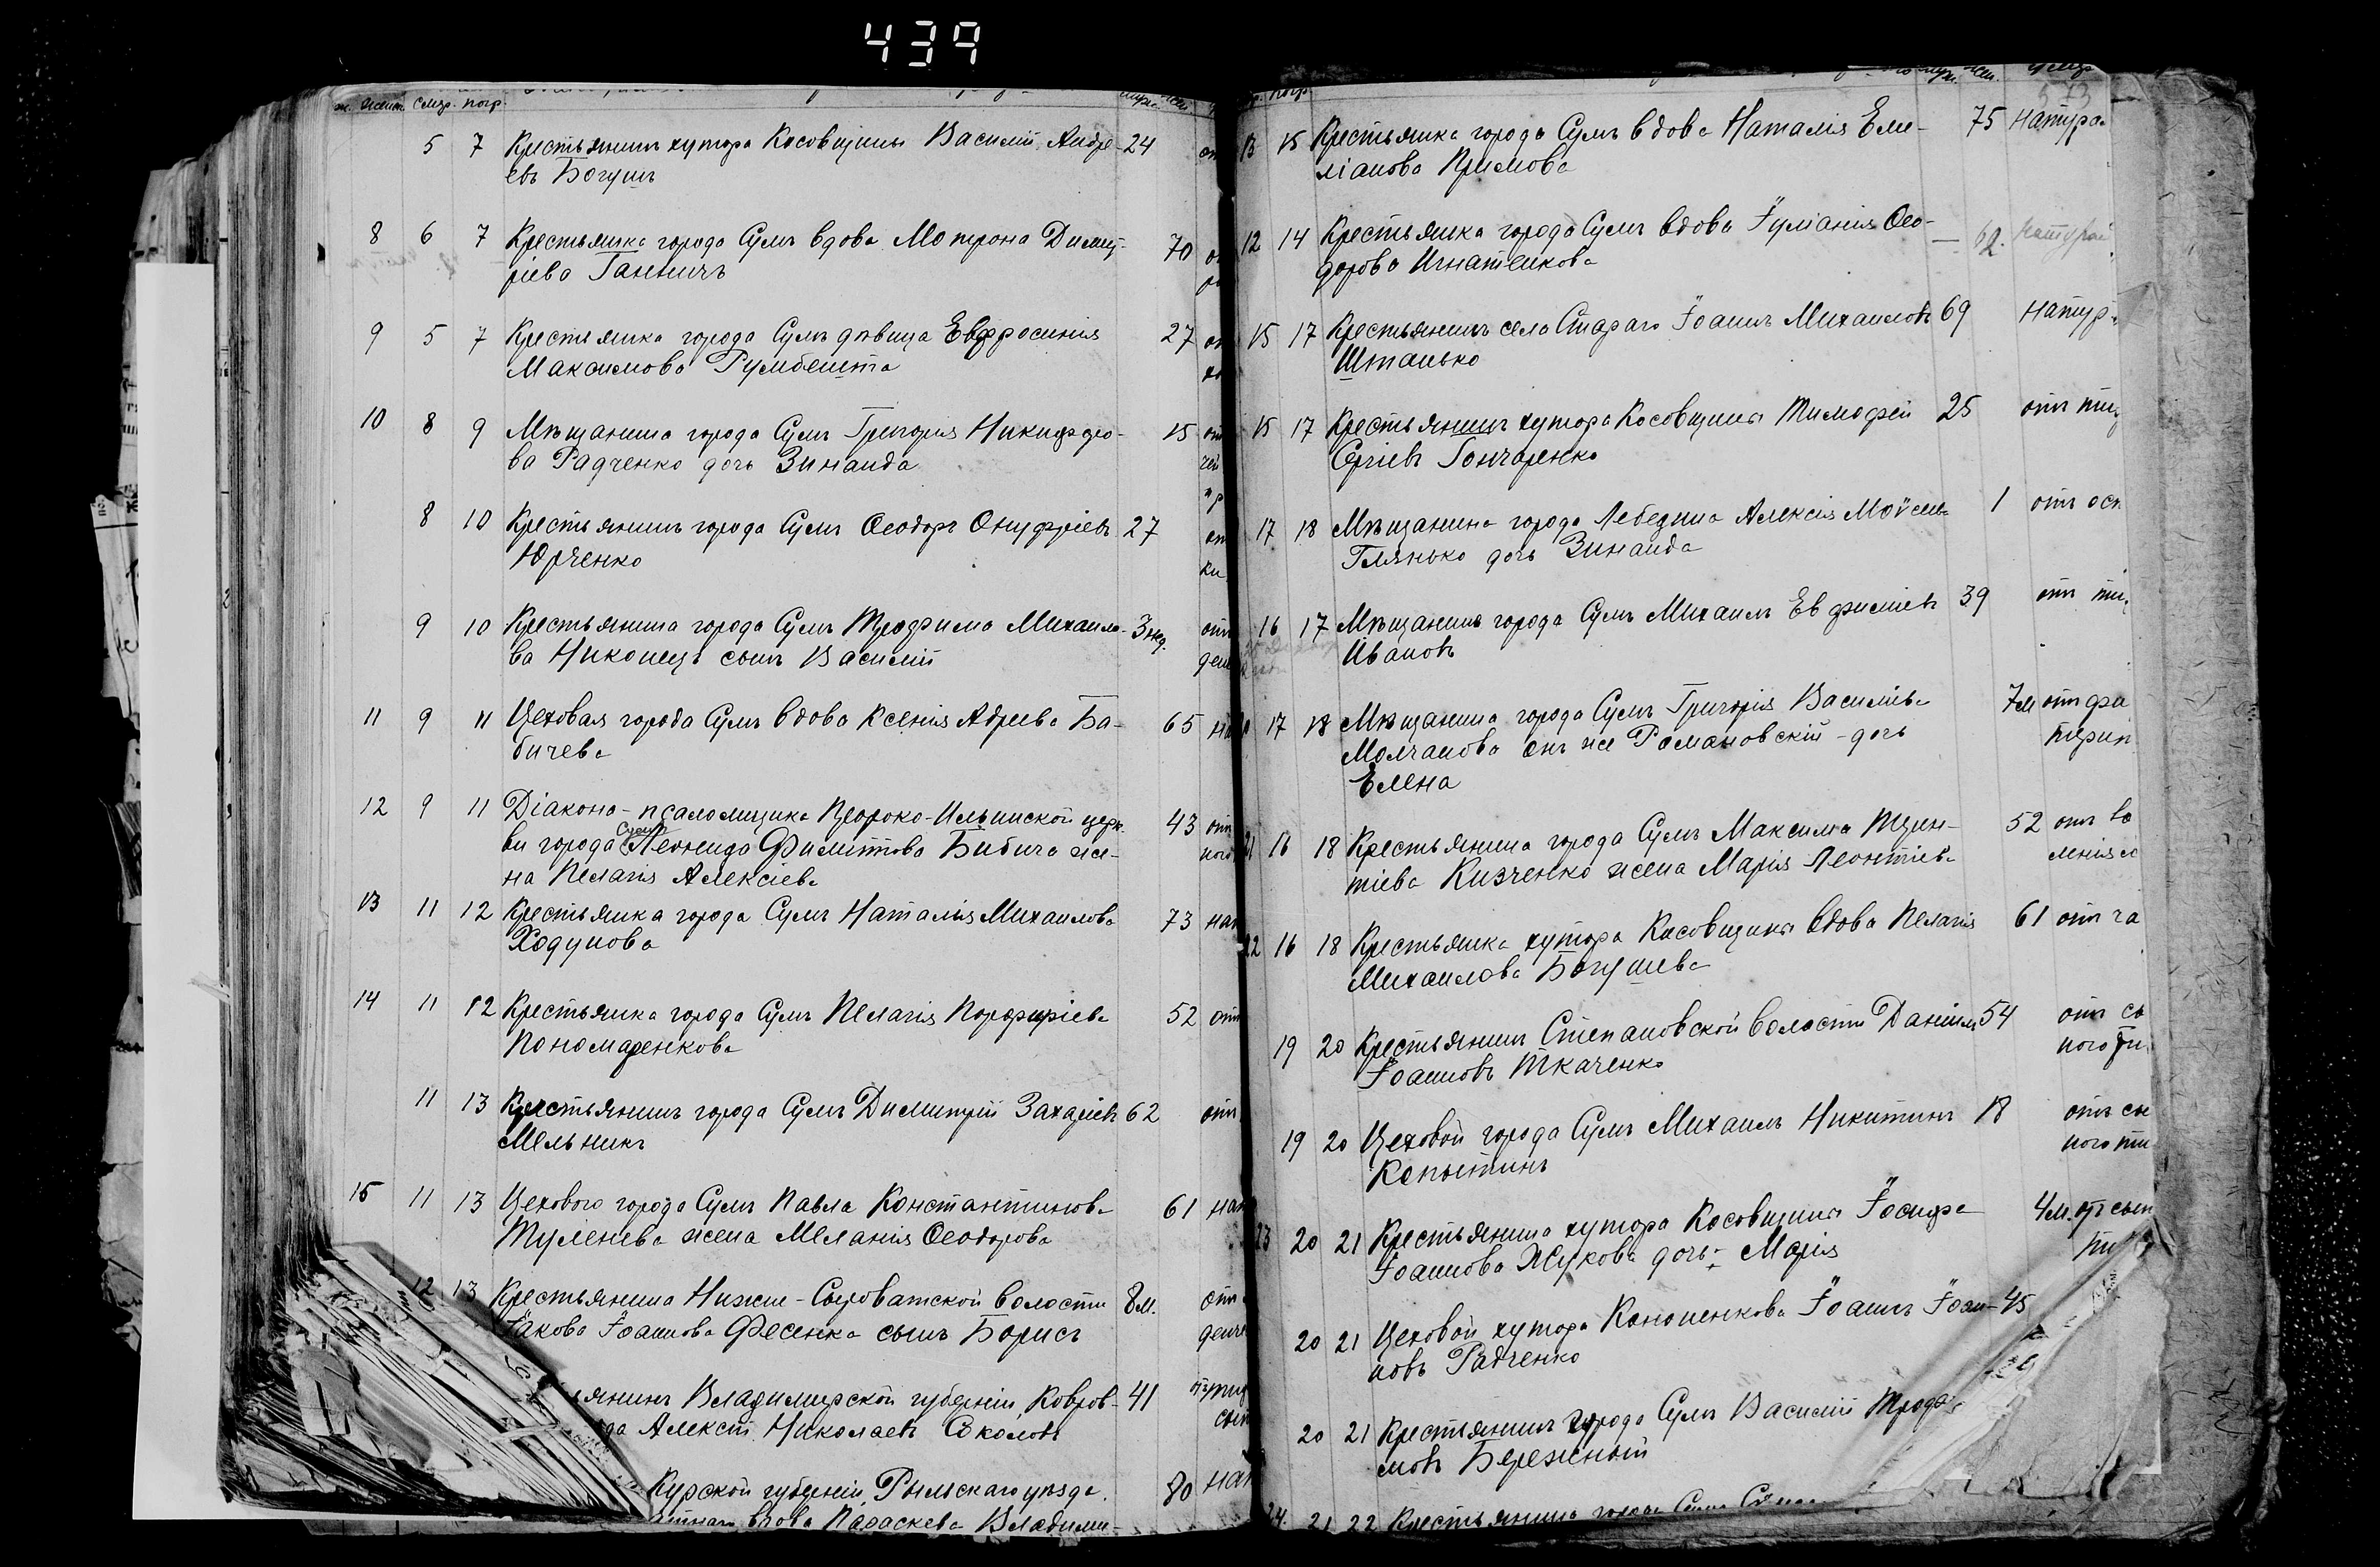 439
женск. смер. погр.
5 7 Крестьянинъ хутора Косовщины Василій Андре- 24
евъ Богушъ
8 6 7 Крестьянка города Сумъ вдова Матрона Димит- 70
ріева Ганничъ
9 5 7 Крестьянка города Сумъ дѣвица Евфросинія 27
Максимова Румбешта
10 8 9 Мѣщанина города Сумъ Григорія Никифоро- 15
ва Радченко дочь Зинаида
8 10 Крестьянинъ города Сумъ Ѳеодоръ Онуфріевъ 27
Юрченко
9 10 Крестьянина города Сумъ Трофима Михаило- 3 нед.
ва Никонецъ сынъ Василій
11 9 11 Цеховая города Сумъ вдова Ксенія Адреева Ба- 65
бичева
12 9 11 Діакона-псаломщика Пророко-Ильинской церк- 43
ви города Сумъ Леонида Филиппова Бибича же-
на Пелагія Алексіева
13 11 12 Крестьянка города Сумъ Наталія Михаилова 73
Ходунова
14 11 12 Крестьянка города Сумъ Пелагія Порфиріева 52
Пономаренкова
11 13 Крестьянинъ города Сумъ Димитрій Захаріевъ 62
Мельникъ
15 11 13 Цехового города Сумъ Павла Константинова 61
Туленева жена Меланія Ѳеодорова
12 13 Крестьянина Нижне-Сыроватской волости 8 м.
Іакова Іоаннова Фесенка сынъ Борисъ
янинъ Владимирской губерніи, Ковров- 41
да Алексій Николаевъ Соколовъ
Курской губерніи, Рыльскаго уѣзда, 80
вдова Параскева Владими-
13 15 Крестьянка города Сумъ вдова Наталія Еми- 75 Натура
ліанова Примова
12 14 Крестьянка города Сумъ вдова Іуліанія Ѳео- 62 натурал
дорова Игнатенкова
15 17 Крестьянинъ села Стараго Іоаннъ Михаиловъ 69 Натур
Штанько
15 17 Крестьянинъ хутора Косовщины Тимофей 25 отъ
Сергіевъ Гончаренко
17 18 Мѣщанина города Лебедина Алексія Моѵсеева 1 отъ осп
Глянько дочь Зинаида
16 17 Мѣщанинъ города Сумъ Михаилъ Евфиміевъ 39 отъ
Ивановъ
17 18 Мѣщанина города Сумъ Григорія Васильева 7 м
Молчанова онъ же Романовскій - дочь
Елена
21 16 18 Крестьянина города Сумъ Максима Терен- 52 отъ во
тіева Кизченко жена Марія Леонтіева
22 16 18 Крестьянка хутора Косовщины вдова Пелагія 61 отъ ча
Михаилова Богушева
19 20 Крестьянинъ Степановской волости Даніилъ 54 отъ сы
Іоанновъ Ткаченко
19 20 Цеховой города Сумъ Михаилъ Никитинъ 18 отъ сы
Копытинъ
23 20 21 Крестьянина хутора Косовщины Іосифа 4 м. отъ сып
Іоаннова Жукова дочь - Марія
20 21 Цеховой хутора Кононенкова Іоаннъ Іоан- 45
новъ Радченко
20 21 Крестьянинъ города Сумъ Василій Трофи-
мовъ Бережный
24. 21 22 Крестьянина города Сумъ